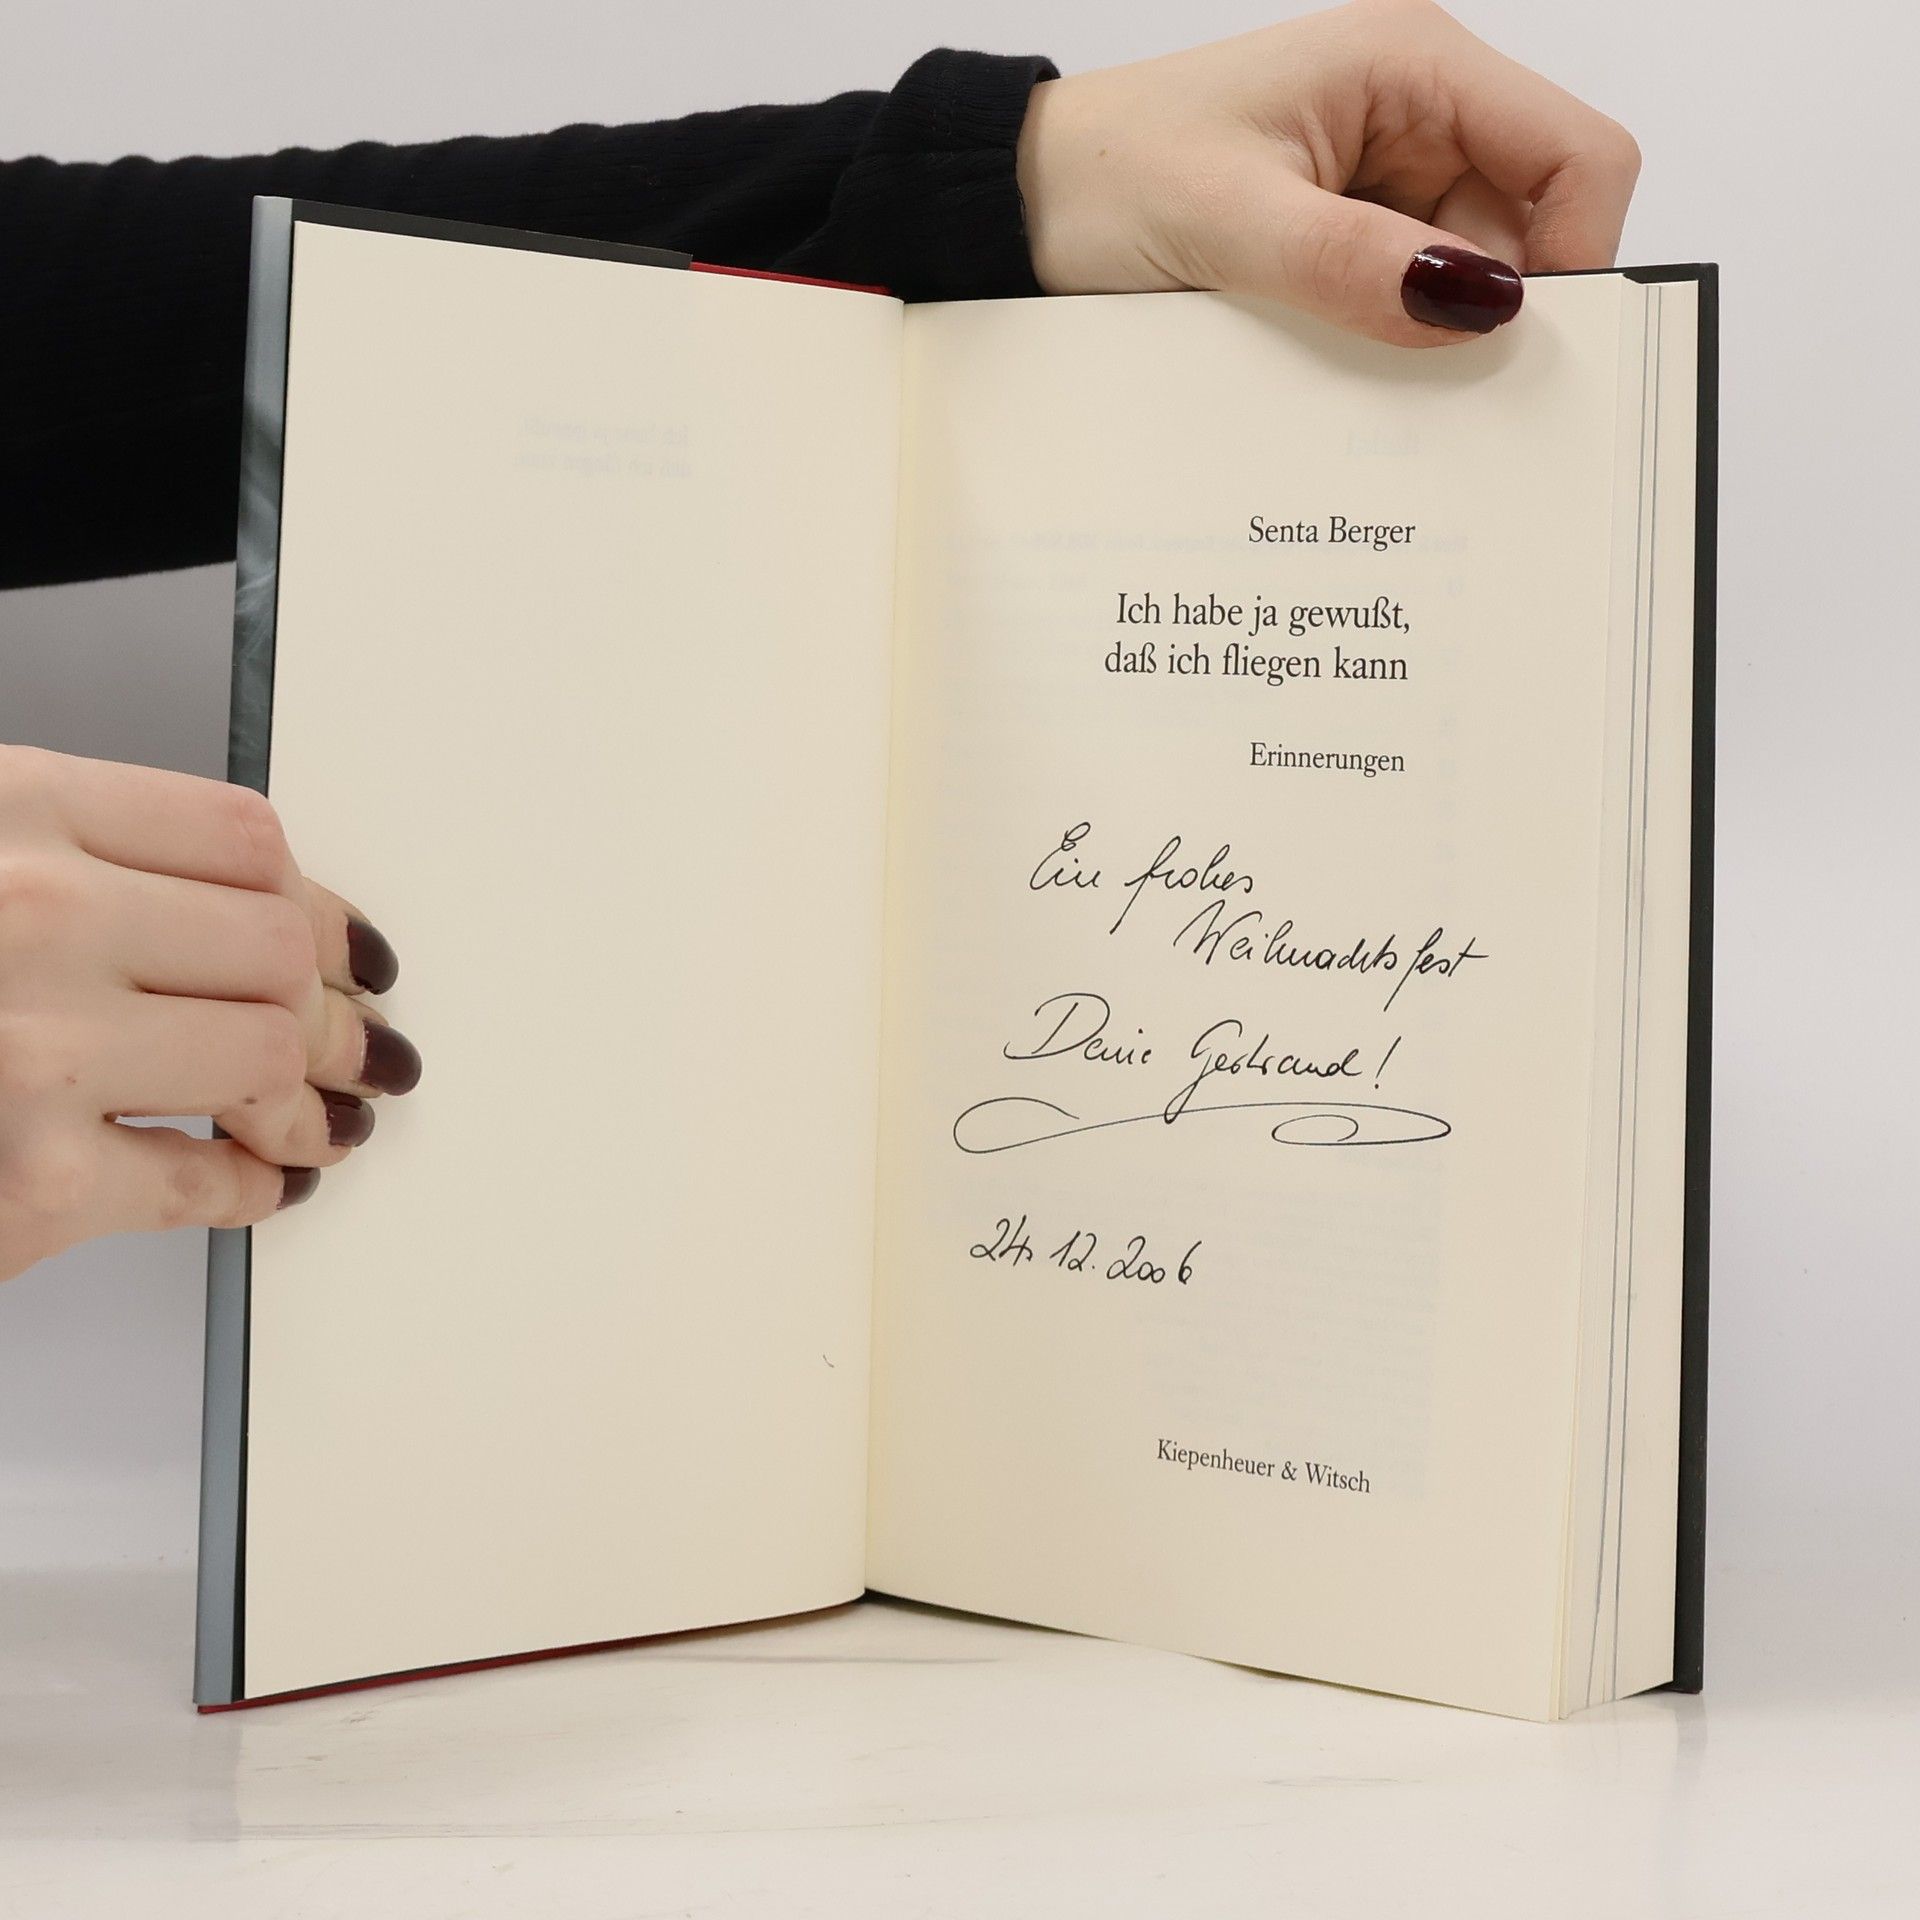 Senta Berger
Ich habe ja gewußt,
daß ich fliegen kann
Erinnerungen
Ein frohes
Weihnachtsfest
Deine !
24. 12. 2006
Kiepenheuer & Witsch